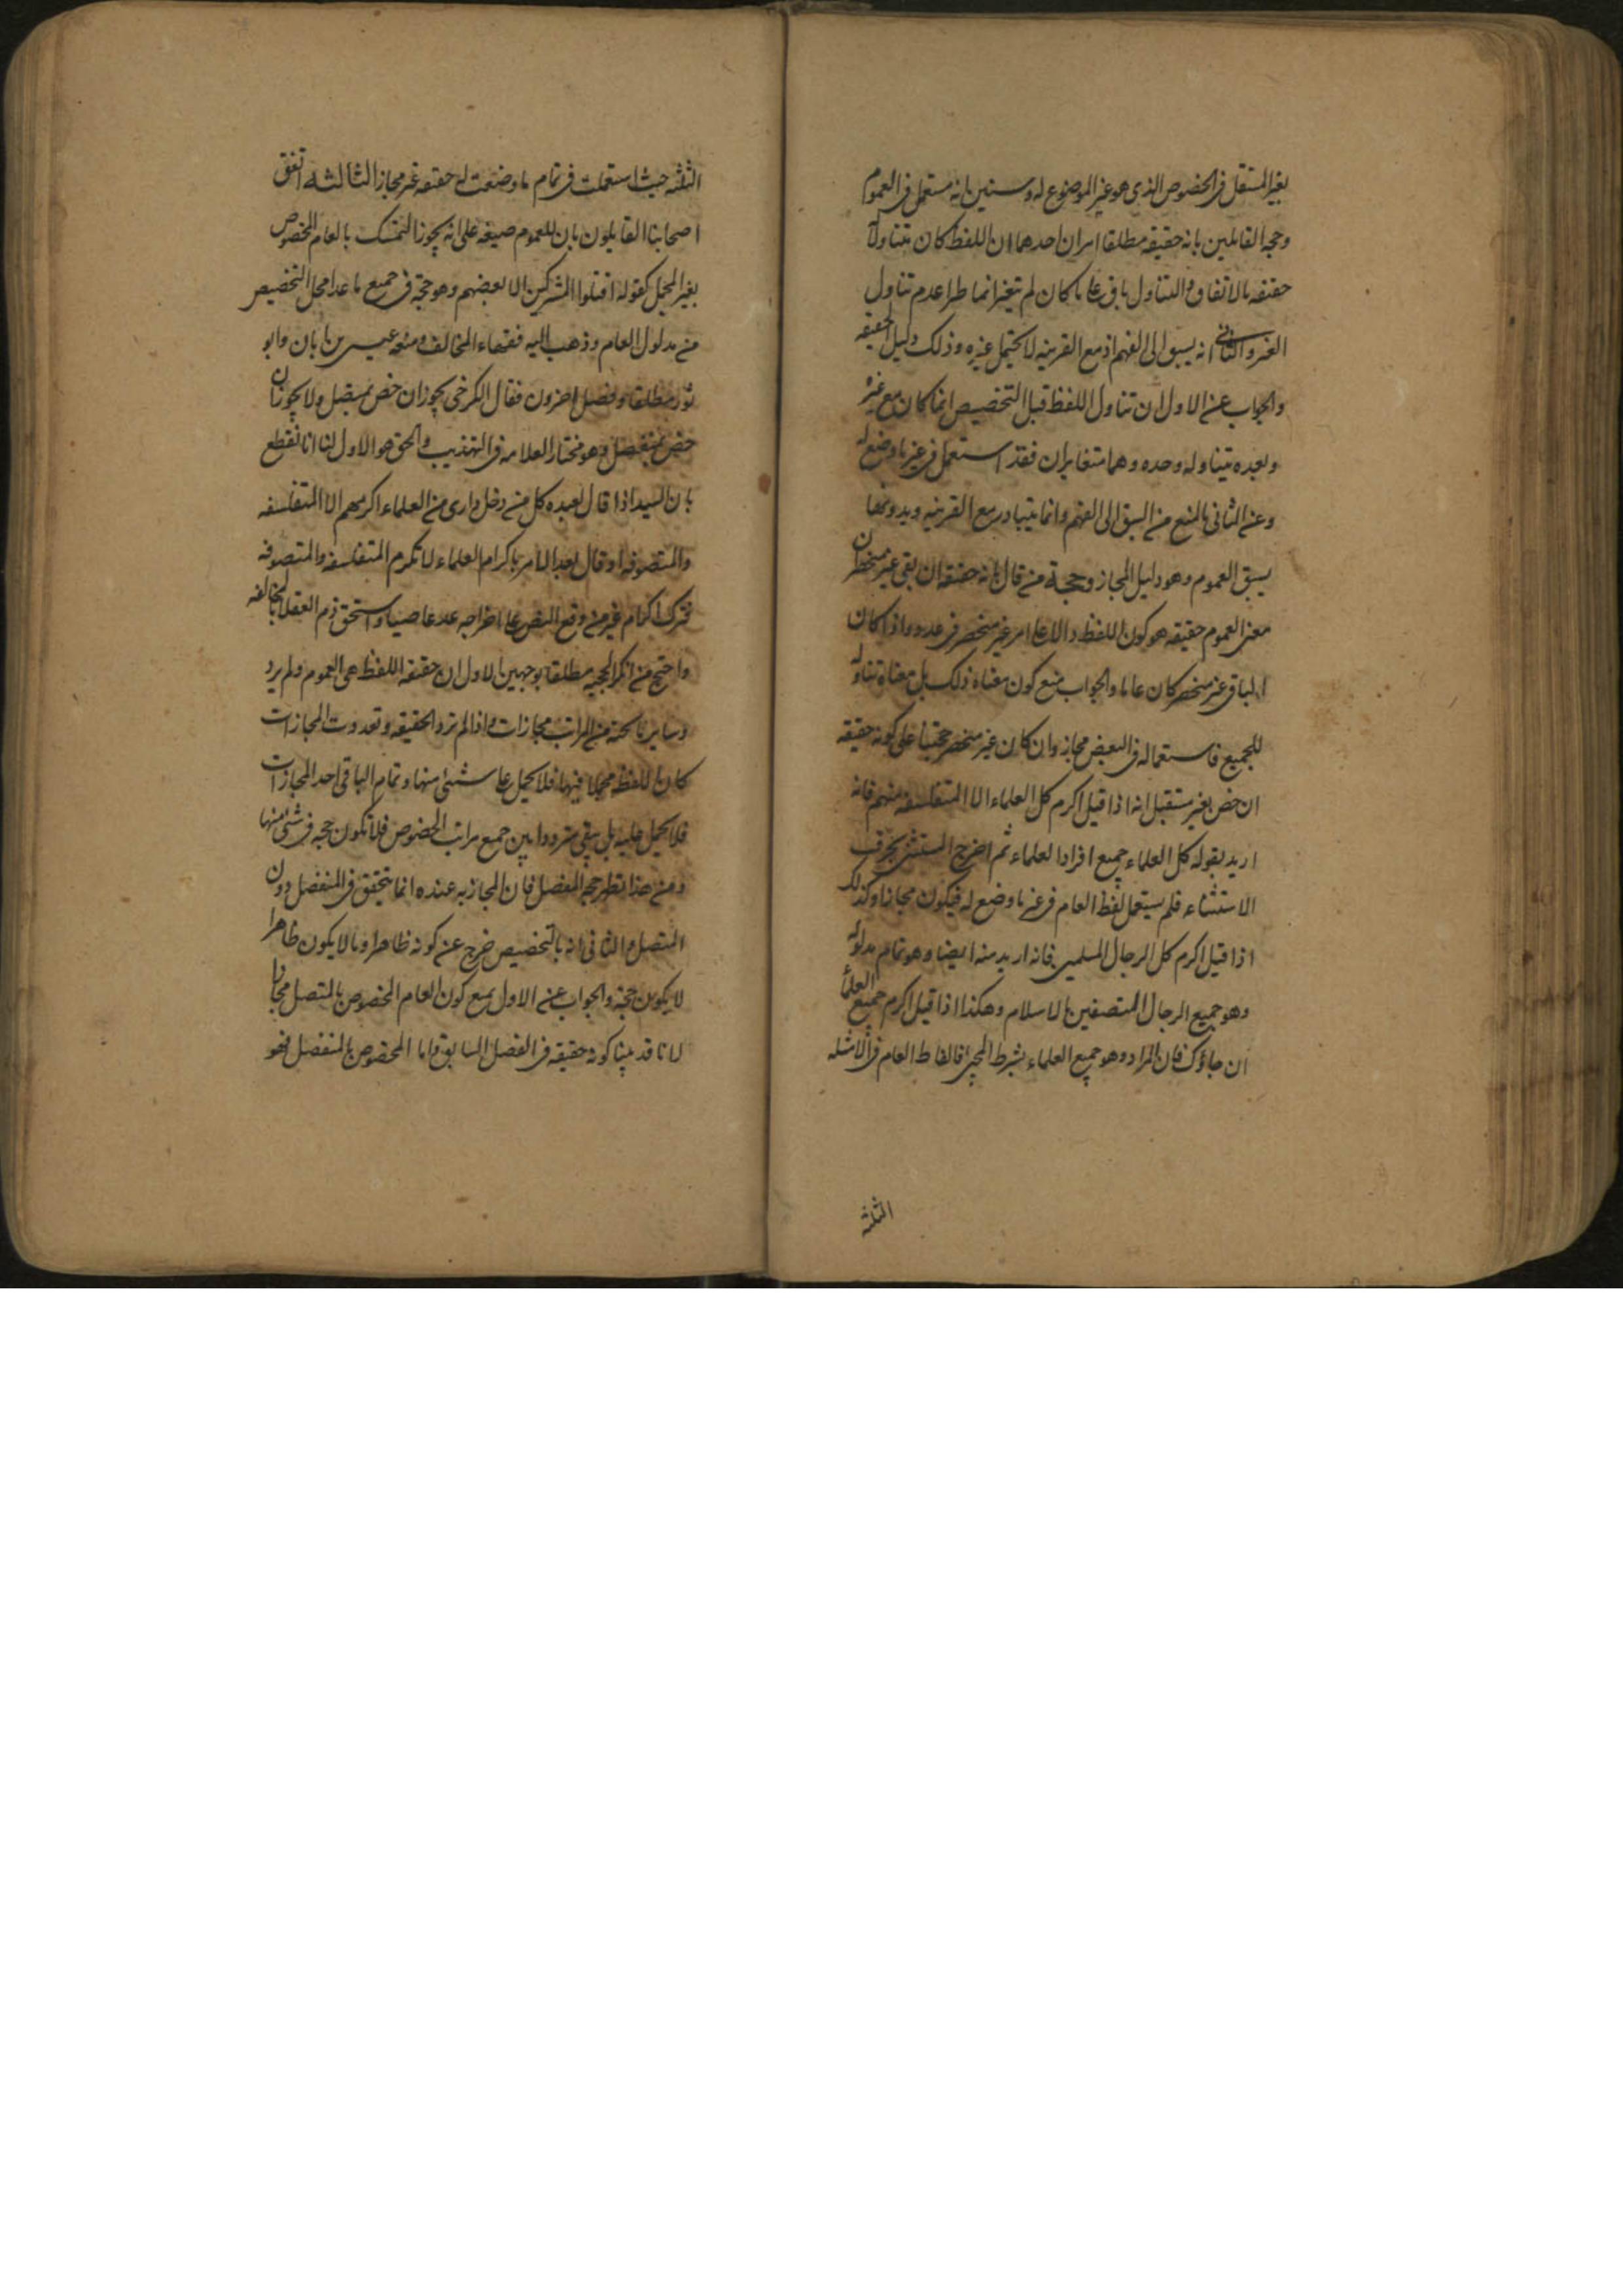 بغير المستقل فى الخصوص الذى هو غير الموضوع له وسنبين انه مستعمل فى العموم
وحجة القائلين بانه حقيقة مطلقا امران احدهما ان اللفظ كان متناولا
حقيقة بالاتفاق والتناول باق على ما كان لم يتغير انما طرا عدم تناول
الغير والثانى انه يسبق الى الفهم اذ مع القرينة لا يحتمل غيره وذلك دليل الحقيقة
والجواب عن الاول ان تناول اللفظ قبل التخصيص انما كان مع غيره
وبعده يتناوله وحده وهما متغايران فقد استعمل فى غير ما وضع له
وعن الثانى بالمنع من السبق الى الفهم وانما يتبادر مع القرينة وبدونها
يسبق العموم وهو دليل المجاز وحجة من قال بانه حقيقة ان بقى غير منحصر ان
معنى العموم حقيقة هو كون اللفظ دالا على امر غير منحصر فى عدد واذا كان
الباقى غير منحصر كان عاما والجواب منع كون معناه ذلك بل معناه تناوله
للجميع فاستعماله فى البعض مجاز وان كان غير منحصر حجتنا على كونه حقيقة
ان خص بغير مستقل انه اذا قيل اكرم كل العلماء الا المتفلسفة منهم فانه
اريد بقوله كل العلماء جميع افراد العلماء ثم اخرج المستثنى بحرف
الاستثناء فلم يستعمل لفظ العام فى غير ما وضع له فيكون مجازا وكذلك
اذا قيل اكرم كل الرجال المسلمين فانه اريد منه ايضا وهو تمام مدلوله
وهو جميع الرجال المتصفين بالاسلام وهكذا اذا قيل اكرم جميع العلماء
ان جاؤك فان المراد وهو جميع العلماء بشرط المجئ فالفاظ العام فى الامثلة
الثلثة
الثلثة حيث استعملت فى تمام ما وضعت له حقيقة غير مجاز الثالثة اتفق
اصحابنا القايلون بان للعموم صيغة على انه يجوز التمسك بالعام المخصوص
بغير المجمل كقوله اقتلوا المشركين الا بعضهم وهو حجة فى جميع ما عدا محل التخصيص
من مدلول العام وذهب اليه فقهاء المخالف ومنعه عيسى بن ابان وابو
ثور مطلقا وفصل اخرون فقال الكرخى يجوز ان خص بمتصل ولا يجوز ان
خص بمنفصل وهو مختار العلامة فى التهذيب والحق هو الاول لنا انا نقطع
بان السيد اذا قال لعبده كل من دخل دارى من العلماء اكرمهم الا المتفلسفة
والمتصوفة او قال بعد الامر باكرام العلماء لا تكرم المتفلسفة والمتصوفة
فترك اكرام غير من وقع النص على اخراجه عد عاصيا واستحق ذم العقلا بمخالفة
واحتج من انكر الحجية مطلقا بوجهين الاول ان حقيقة اللفظ هى العموم ولم يرد
وساير ما تحته من المراتب مجازات واذا لم ترد الحقيقة وتعددت المجازات
كان اللفظ مجملا فيها فلا يحمل على شئ منها وتمام الباقى احد المجازات
فلا يحمل عليه بل يبقى مترددا بين جميع مراتب الخصوص فلا تكون حجة فى شئ منها
ومن هذا تظهر حجة المفصل فان المجازية عنده انما يتحقق فى المنفصل دون
المتصل والثانى انه بالتخصيص خرج عن كونه ظاهرا وما لا يكون ظاهرا
لا يكون حجة والجواب عن الاول بمنع كون العام المخصوص بالمتصل مجازا
لانا قد بينا كونه حقيقة فى الفصل السابق واما المخصوص بالمنفصل فهو